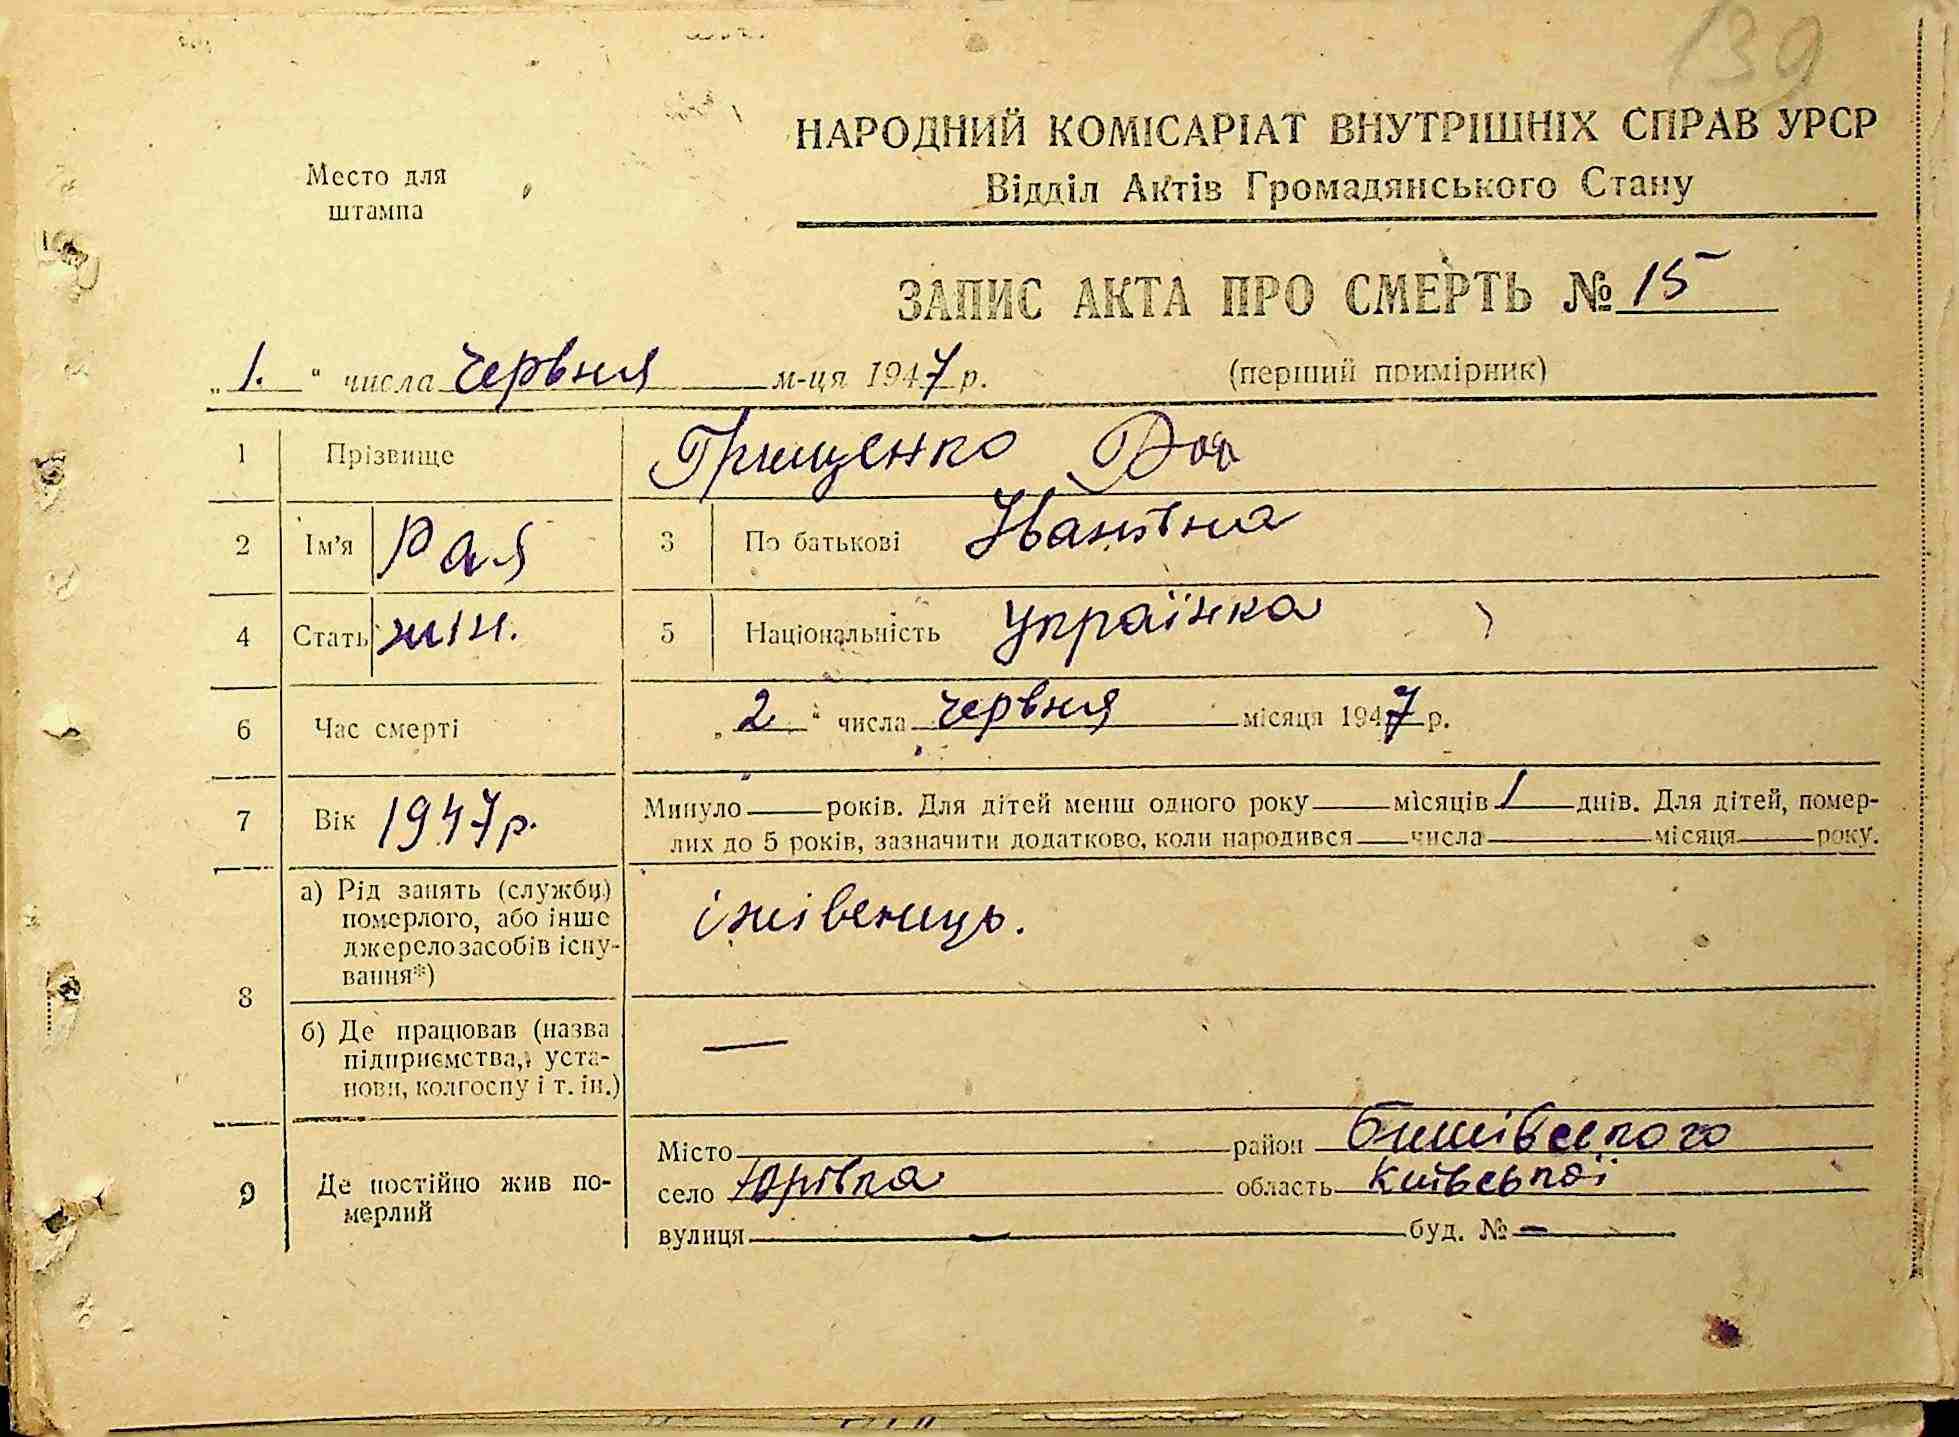 139
НАРОДНИЙ КОМІСАРІАТ ВНУТРІШНІХ СПРАВ УРСР
Відділ Актів Громадянського Стану
Место для
штампа
ЗАПИС АКТА ПРО СМЕРТЬ № 15
„1.“ числа червня м-ця 1947 р. (перший примірник)
1 Прізвище Грищенко
2 Ім'я Рая 3 По батькові Іванівна
4 Стать жін. 5 Національність Українка
6 Час смерті „2“ числа червня місяця 1947 р.
7 Вік 1947р. Минуло — років. Для дітей менш одного року — місяців 1 днів. Для дітей, помер-
лих до 5 років, зазначити додатково, коли народився — числа — місяця — року.
8 а) Рід занять (служби)
померлого, або інше
джерело засобів існу-
вання*)
іжівенець.
б) Де працював (назва
підприємства, уста-
нови, колгоспу і т. ін.)
—
9 Де постійно жив по-
мерлий
Місто район Бишівського
село Юрівка область Київської
вулиця — буд. № —